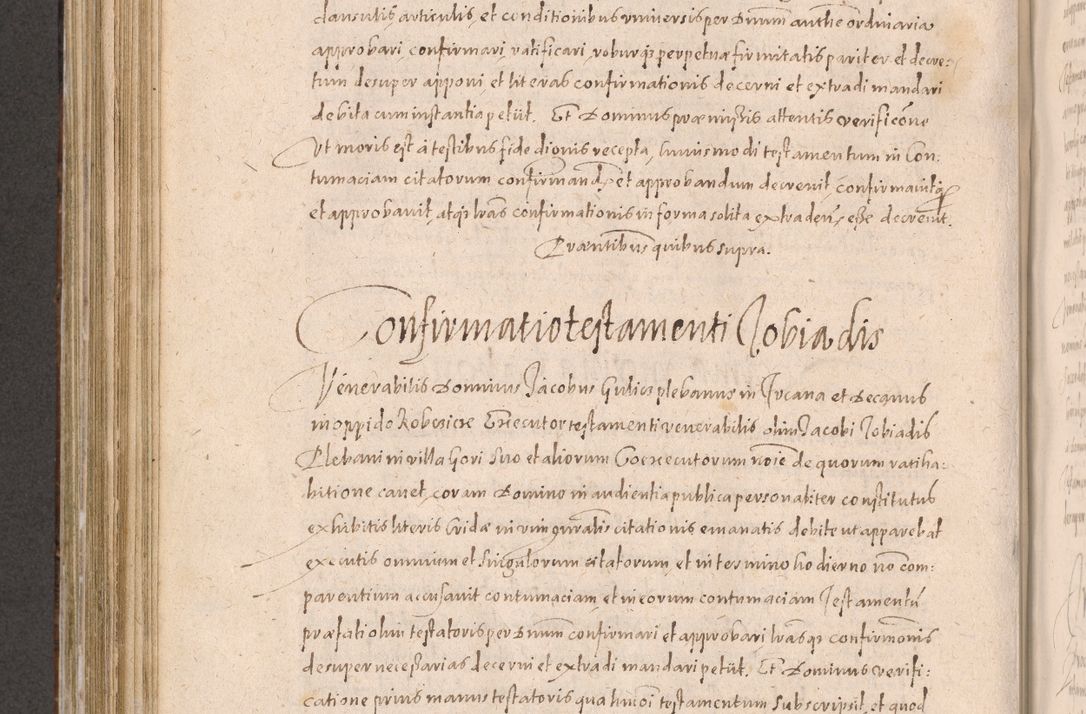 clausulis articulis, et conditionibus universis per Dnum authē ordinaria
approbari confirmari ratificari, roburq; perpetuæ firmitatis pariter et decre:
tum desuper apponi, et literas confirmationis decerni et extradi mandari
debita cum instantia petiit. Et Dominus præmissis attentis verificōne
Ut moris est à testibus fide dignis recepta, huiusmodi testamentum in Con:
tumaciam citatorum confirmand, et approbandum decrevit confirmavitq;
et approbavit, atq; lras confirmationis in forma solita extraden, esse decrevit.
Præntibus quibus supra.
Confirmatio testamenti Jobiadis
Venerabilis Dominus Jacobus Gulicz plebanus in et Decanus
in oppido Executor testamenti venerabilis olim Jacobi Jobiadis
Plebani in villa Gori suo et aliorum Coexecutorum noīe de quorum ratiha:
bitione cavet, coram Domino in audientia publica personaliter constitutus
exhibitis literis Cridæ in vim gnralis citationis emanatis debite ut apparebat
executis omnium et singulorum citatorum, et in termino hodierno nō com:
parentium accusavit contumaciam, et in eorum contumaciam Testamentū
præfati olim testatoris per Dnum confirmari et approbari lrasq; confirmōnis
desuper necessarias decerni et extradi mandari petiit. Et Dominus verifi:
catione prius manus testatoris qua hmōi testamentum subscripsit, et quod